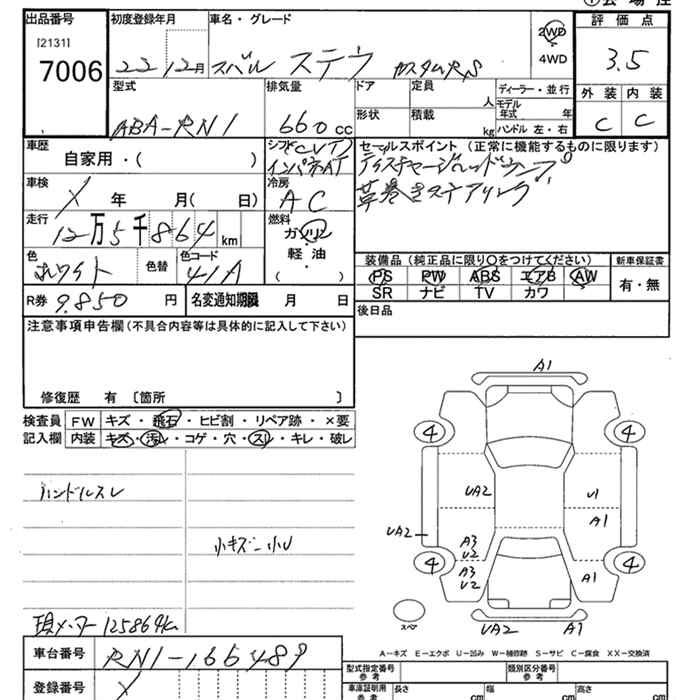 出品番号
[2131]
7006
初度登録年月
22 12月
車名・グレード
スバル ステラ カスタムRS
2WD
4WD
評価点
3.5
外装 内装
C C
型式
ABA-RN1
排気量
660cc
ドア
定員
人
形状
積載
kg
ディーラー・並行
モデル年式 年
ハンドル 左・右
車歴
自家用・( )
シフト CVT
インパネAT
セールスポイント (正常に機能するものに限ります)
ディスチャージヘッドランプ
革巻きステアリング
車検
X 年 月( 日)
冷房
AC
走行
12万5千864km
燃料
ガソリン
・
軽油
・
( )
色
ホワイト
色替
色コード
41A
装備品 (純正品に限り○をつけてください)
PS PW ABS エアB AW
SR ナビ TV カワ
新車保証書
有・無
R券 9,850 円
名変通知期限 月 日
後日品
注意事項申告欄(不具合内容等は具体的に記入して下さい)
修復歴 有 〔箇所 〕
検査員
記入欄
FW キズ・飛石・ヒビ割・リペア跡・×要
内装 キズ・汚レ・コゲ・穴・スレ・キレ・破レ
ハンドルスレ
小キズ 小U
現メーター125864km
A1
4 4
UA2 U1
A1
UA2
A3
U2
4 4
A3
U2
A1
スペア
UA2 A1
A-キズ E-エクボ U-凹み W-補修跡 S-サビ C-腐食 XX-交換済
車台番号
RN1-166489
登録番号
X
型式指定番号
参考
類別区分番号
参考
車庫証明用
参考
長さ cm
幅 cm
高さ cm